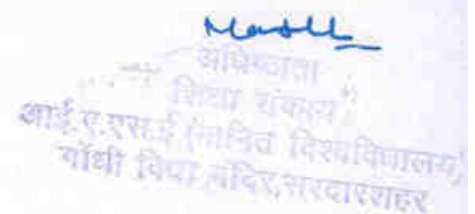 अधिष्ठाता
शिक्षा संकाय
आई.ए.एस.ई (मानित विश्वविद्यालय)
गाँधी विद्या मंदिर,सरदारशहर